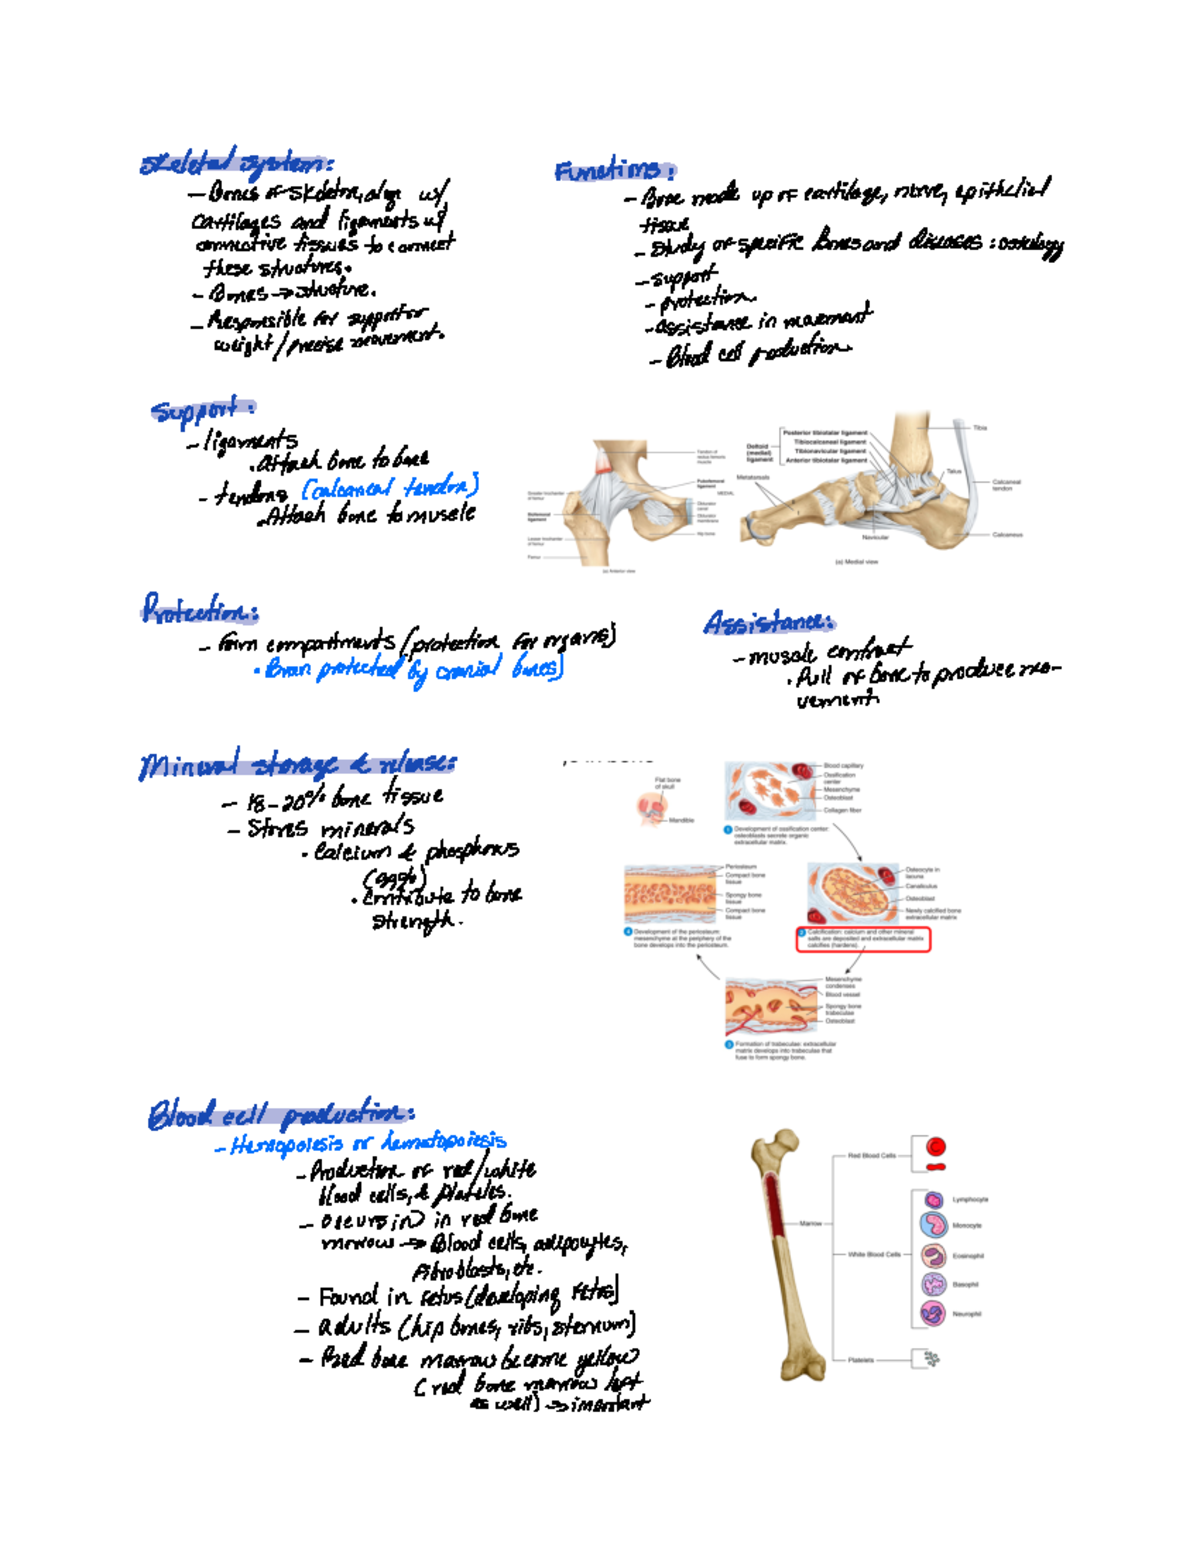 Skeletal system:
- Bones of skeleton, along w/
cartilages and ligaments w/
connective tissues to connect
these structures.
- Bones → structure.
- Responsible for support or
weight / precise movement.
Functions:
- Bone made up of cartilage, nerve, epithelial
tissue
- Study of specific Bones and diseases : osteology
- support
- protection.
- assistance in movement
- Blood cell production.
Support:
- ligaments
• Attach bone to bone
- tendons (calcaneal tendon)
• Attach bone to muscle
Tendon of
rectus femoris
muscle
Pubofemoral
ligament
MEDIAL
Obturator
canal
Obturator
membrane
Hip bone
Greater trochanter
of femur
Iliofemoral
ligament
Lesser trochanter
of femur
Femur
(a) Anterior view
Deltoid
(medial)
ligament
Posterior tibiotalar ligament
Tibiocalcaneal ligament
Tibionavicular ligament
Anterior tibiotalar ligament
Metatarsals
Tibia
Talus
Calcaneal
tendon
Navicular
Calcaneus
(a) Medial view
Protection:
- Form compartments (protection for organs)
• Brain protected by cranial bones)
Assistance:
- muscle contract
• Pull of bone to produce mo-
vement
Mineral storage & release:
- 18-20% bone tissue
- Stores minerals
• Calcium & phosphorus
(99%)
• Contribute to bone
strength.
Flat bone
of skull
Mandible
Blood capillary
Ossification
center
Mesenchyme
Osteoblast
Collagen fiber
1 Development of ossification center:
osteoblasts secrete organic
extracellular matrix.
Osteocyte in
lacuna
Canaliculus
Osteoblast
Newly calcified bone
extracellular matrix
2 Calcification: calcium and other mineral
salts are deposited and extracellular matrix
calcifies (hardens).
Periosteum
Compact bone
tissue
Spongy bone
tissue
Compact bone
tissue
4 Development of the periosteum:
mesenchyme at the periphery of the
bone develops into the periosteum.
Mesenchyme
condenses
Blood vessel
Spongy bone
trabeculae
Osteoblast
3 Formation of trabeculae: extracellular
matrix develops into trabeculae that
fuse to form spongy bone.
Blood cell production:
- Hemopoiesis or hematopoiesis
- Production of red/white
blood cells, & platelets.
- occurs in) in red bone
marrow → Blood cells, adipocytes,
fibroblasts, etc.
- Found in fetus (developing fetus)
- adults (hip bones, ribs, sternum)
- Red bone marrow become yellow
(red bone marrow left
as well) → important
Marrow
Red Blood Cells
White Blood Cells
Lymphocyte
Monocyte
Eosinophil
Basophil
Neurophil
Platelets